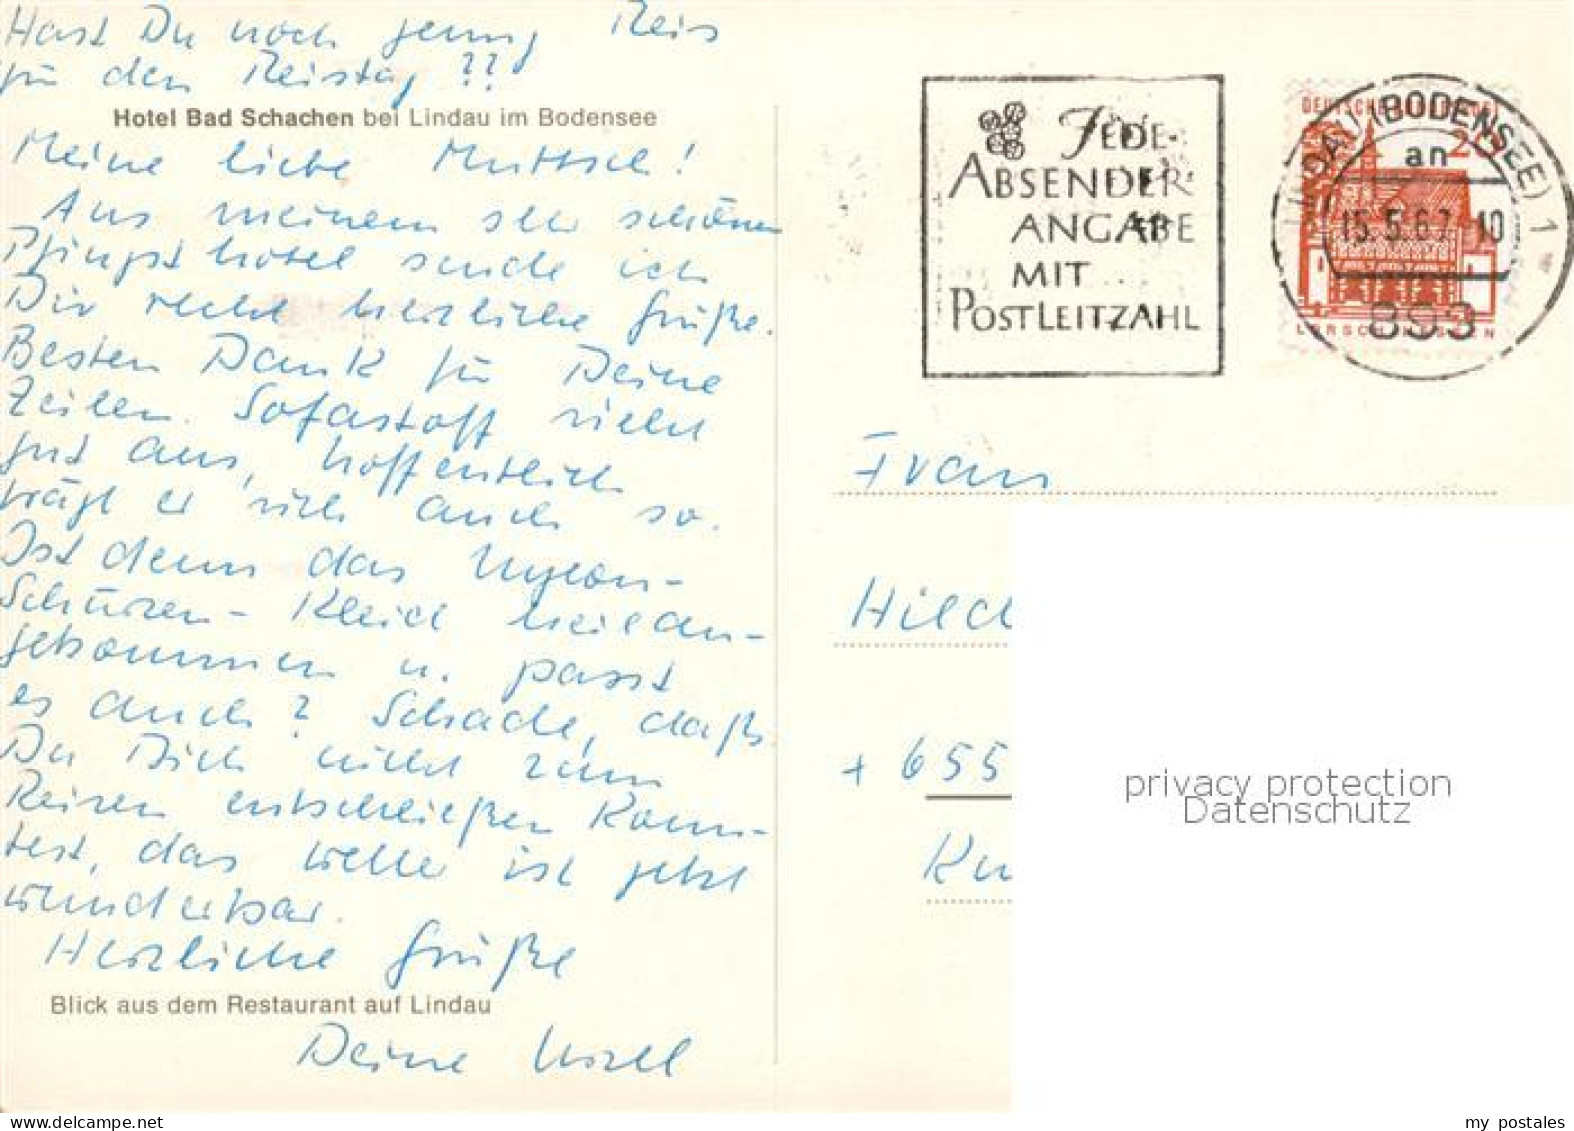 Hast Du noch genug Reis
für den Reistag ??
Hotel Bad Schachen bei Lindau im Bodensee
Meine liebe Muttsch!
Aus meinem sehr schönen
Pfingsthotel sende ich
Dir recht herzliche Grüße.
Besten Dank für Deine
Zeilen. Sofastoff sieht
gut aus, hoffentlich
trägt er sich auch so.
Ist denn das Nylon-
Schürzen-Kleid heil an-
gekommen u. passt
es auch? Schade, daß
Du Dich nicht zum
Reisen entschließen konn-
test, das Wetter ist jetzt
wunderbar.
Herzliche Grüße
Blick aus dem Restaurant auf Lindau
Deine
JEDE
ABSENDER-
ANGABE
MIT
POSTLEITZAHL
DEUTSCHE
LINDAU (BODENSEE) 1
an
15.5.67. 10
893
LORSCH HESSEN
Frau
Hild
+ 655
Ku
privacy protection
Datenschutz
my postales